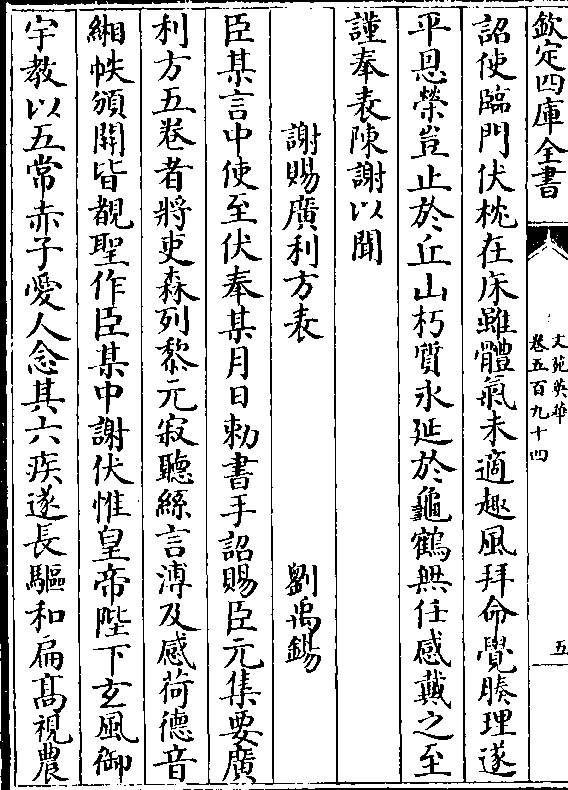 欽定四庫全書
文苑英華
卷五百九十四
五
詔使臨門伏枕在床雖體氣未適趣風拜命覺腠理遂
平恩榮豈止於丘山朽質永延於龜鶴無任感戴之至
謹奉表陳謝以聞
謝賜廣利方表 劉禹錫
臣某言中使至伏奉某月日勅書手詔賜臣元集要廣
利方五卷者將吏森列黎元寂聽絲言溥及感荷德音
緗帙頒開皆覩聖作臣某中謝伏惟皇帝陛下玄風御
宇教以五常赤子愛人念其六疾遂長驅和扁髙視農